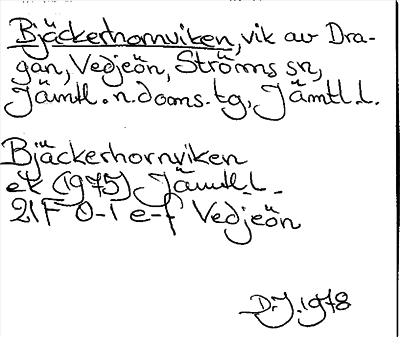 Bjäckerhornviken, vik av Dra-
gan, Vedjeön, Ströms sn,
Jämtl. n. doms. tg, Jämtl. l.
Bjäckerhornviken
ek (1975) Jämtl. l.
21F 0-1 e-f Vedjeön
D.J. 1978